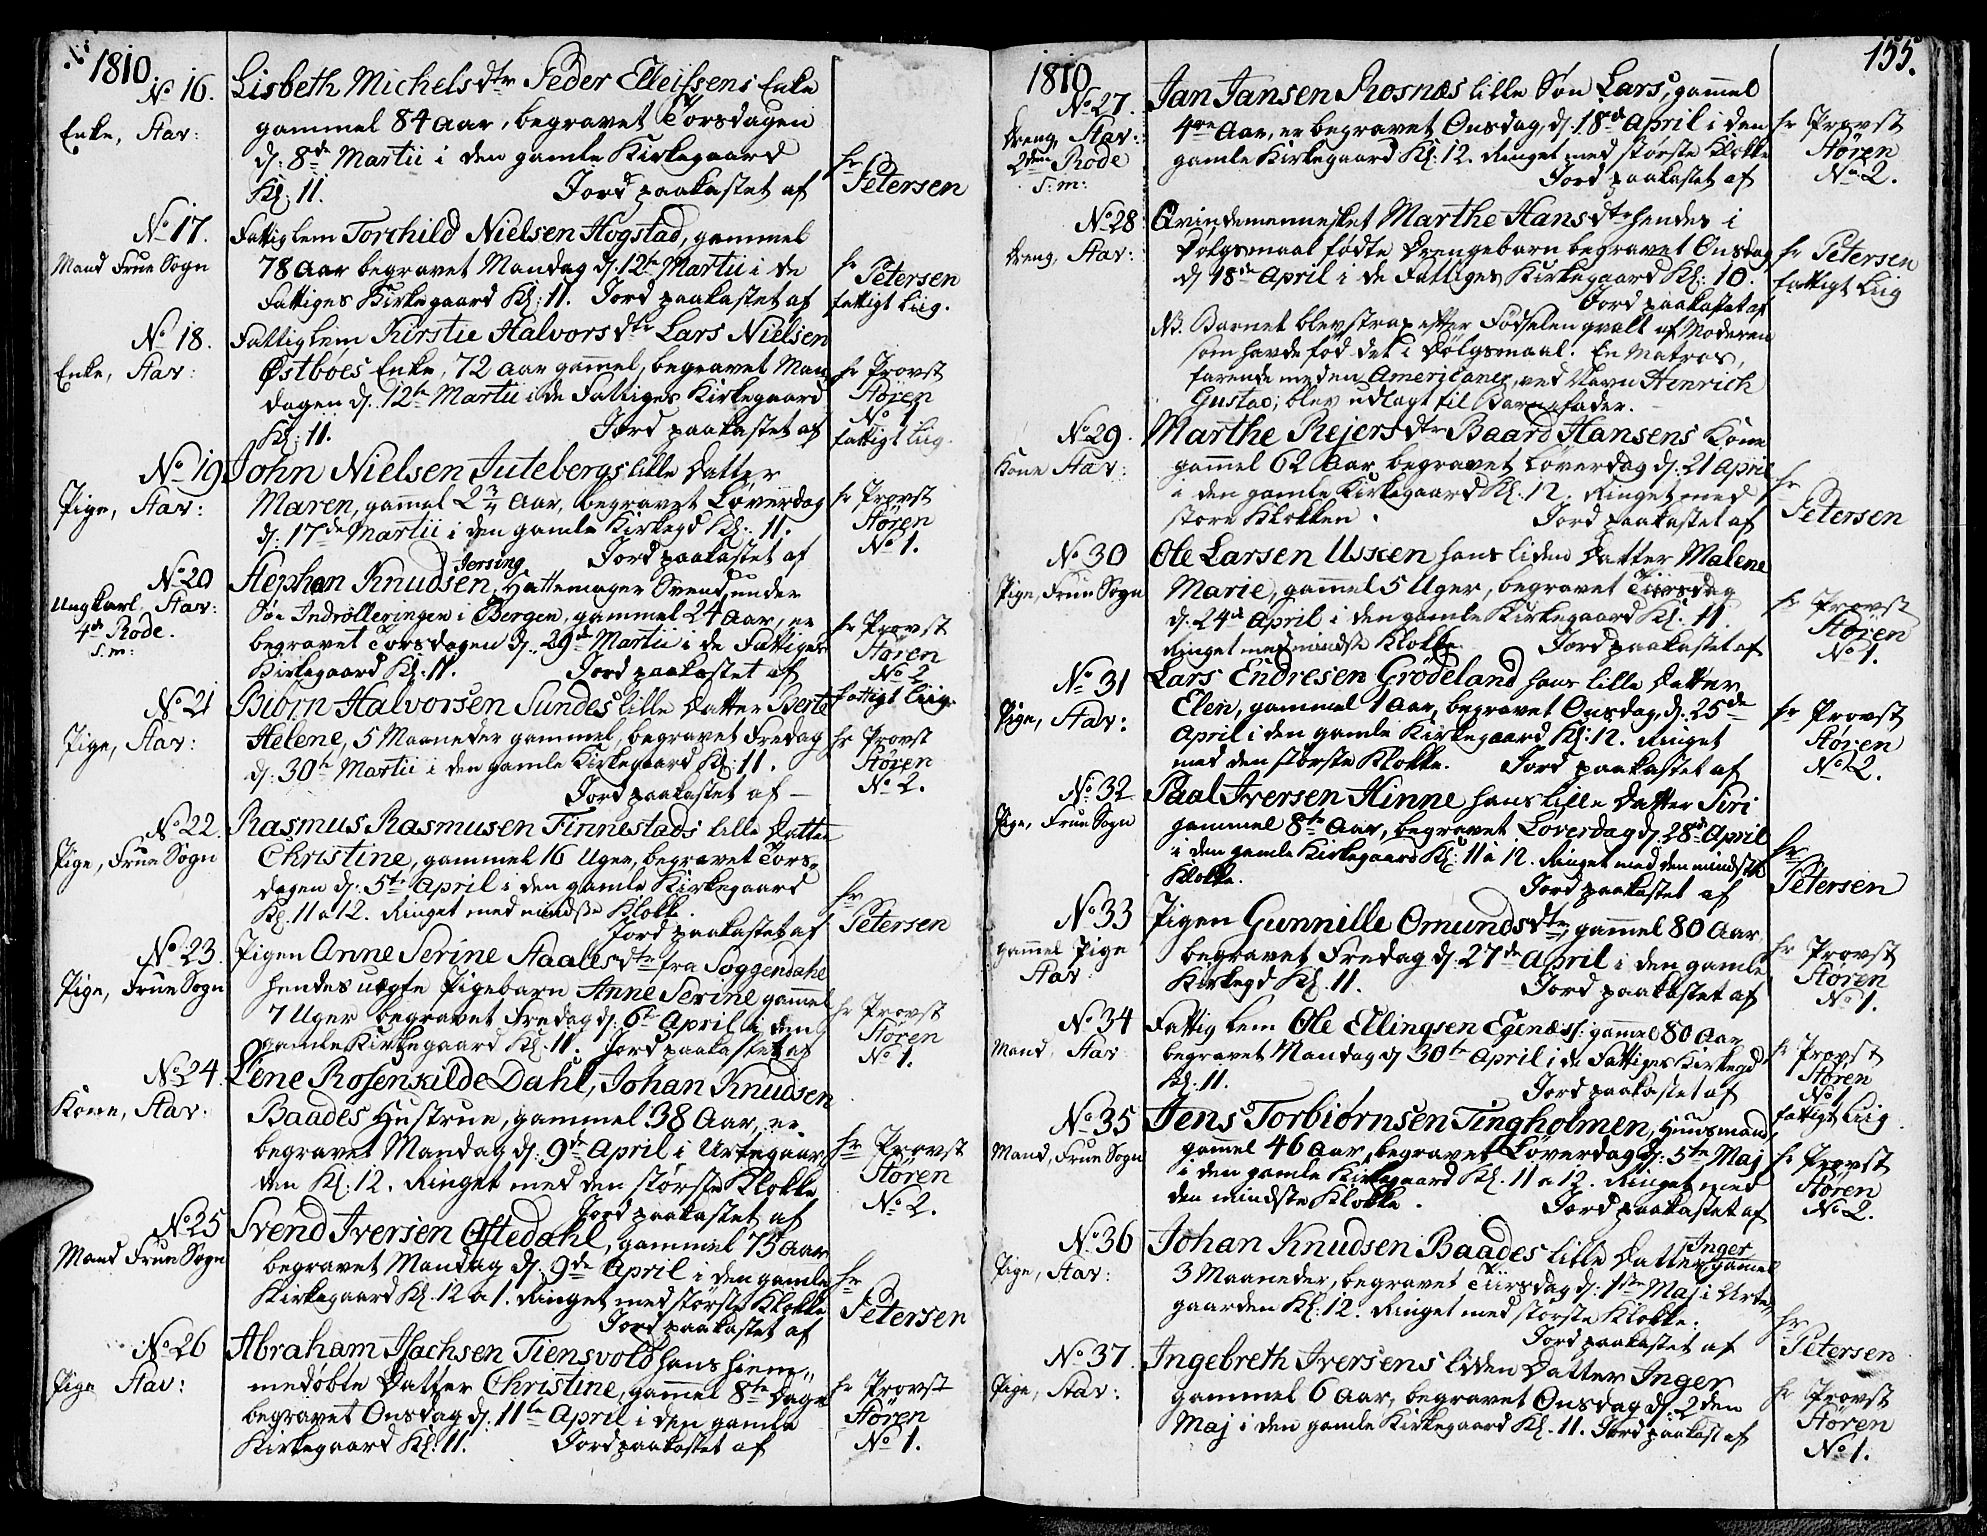 1810.
No 16.
Enke, Stav:
Lisbeth Michelsdtr Peder Elleifsens Enke
gammel 84 Aar, begravet Torsdagen
d: 8de Martii i den gamle Kirkegaard
Kl: 11. Jord paakastet af
hr Petersen
No 17.
Mand Frue Sogn
Fattiglem Torchild Nielsen Hogstad, gammel
78 Aar begravet Mandag d: 12te Martii i de
Fattiges Kirkegaard Kl: 11. Jord paakastet af
hr Petersen
fattigt Liig.
No 18.
Enke, Stav:
Fattiglem Kirstie Halvorsdtr Lars Nielsen
Østboes Enke, 72 Aar gamel, begravet Man
dagen d. 12te Martii i de Fattiges Kirkegaard
Kl: 11. Jord paakastet af
hr Provst
Støren
No 1.
fattigt Liig.
No 19
Pige, Stav:
John Nielsen Jutebergs lille Datter
Maren, gamel 2 3/4 Aar, begravet Løverdag
d: 17de Martii i den gamle Kirkegd Kl: 11.
Jord paakastet af
hr Provst
Støren
No 1.
No 20
Ung Karl, Stav:
4de Rode.
S.m:
Jersing
Stephan Knudsen, Hattemager Svend, under
Søe Indrolleringen i Bergen, gammel 24 Aar, er
begravet Torsdagen d. 29de Martii i de Fattiges
Kirkegaard Kl: 11. Jord paakastet af
hr Provst
Støren
No 2
fattigt Liig.
No 21
Pige, Stav:
Biørn Halvorsen Sundes lille Datter Berte
Helene, 5 Maaneder gammel, begravet Fredag
d: 30te Martii i den gamle Kirkegaard Kl: 11.
Jord paakastet af
hr Provst
Støren
No 2.
No 22.
Pige, Frue Sogn
Rasmus Rasmusen Finnestads lille Datter
Christine, gammel 16 Uger, begravet Tors-
dagen d: 5te April i den gamle Kirkegaard
Kl. 11 a 12. Ringet med mindste Klokk.
Jord paakastet af
hr Petersen
No 23.
Pige, Frue Sogn
Pigen Anne Serine Staallesdtr fra Soggendahl
hendes uægte Pigebarn Anne Serine gammel
7 Uger begravet Fredag d: 6te April i den
gamle Kirkegaard Kl: 11. Jord paakastet af
hr Provst
Støren
No 1.
No 24.
Kone, Stav:
Lene Rosenkilde Dahl, Johan Knudsen
Baades Hustrue, gammel 38 Aar, er
begravet Mandag d: 9de April i Urtegaar
den Kl: 12. Ringet med den største Klokke
Jord paakastet af
hr Provst
Støren
No 2.
No 25
Mand Frue Sogn
Svend Iversen Oftedahl, gammel 75 Aar
begravet Mandag d: 9de April i den gamle
Kirkegaard Kl. 12 a 1. Ringet med største Klokke
Jord paakastet af
hr Petersen
No 26
Pige Stav:
Abraham Isachsen Tiensvold hans hiem-
medøbte Datter Christine, gamel 8te Dage
begravet Onsdag d: 11te April i den gamle
Kirkegaard Kl: 11. Jord paakastet af
hr Provst
Støren
No 1.
155.
1810
No 27.
Dreng, Stav:
2den Rode
S: m:
Jan Jansen Rosnæs lille Søn Lars, gammel
4re Aar, er begravet Onsdag, d: 18de April i den
gamle Kirkegaard Kl: 12. Ringet med største Klokke
Jord paakastet af
hr Provst
Støren
No 2.
No 28
Dreng, Stav:
Qvindemennesket Marthe Hansdtr hendes i
Dølgsmaal fødte Drengebarn begravet Onsdag
d 18de April i de Fattiges Kirkegaard Kl: 10.
Jord paakastet af
hr Petersen
fattigt Liig
NB. Barnet blev strax efter Fødselen qvalt af Moderen
som havde fød det i Dølgsmaal. En Matros,
farende med en Americaner, ved Navn Henrich
Gustav, blev udlagt til Barnefader.
No 29.
Kone Stav:
Marthe Rejersdtr Baard Hansens Kone
gamel 62 Aar, begravet Løverdag d: 21 April
i den gamle Kirkegaard Kl: 12. Ringet med
store Klokken. Jord paakastet af
hr Petersen
No 30
Pige, Frue Sogn
Ole Larsen Ussken hans liden Datter Malene
Marie, gamel 5 Uger, begravet Tiirsdag
d: 24de April i den gamle Kirkegaard Kl: 11.
Ringet med mindste Klokke. Jord paakastet af
hr Provst
Støren
No 1.
No 31
Pige, Stav:
Lars Endresen Grødeland hans lille Datter
Elen, gammel 1 Aar, begravet Onsdag, d: 25de
April i den gamle Kirkegaard Kl: 12. Ringet
med den største Klokke. Jord paakastet af
hr Provst
Støren
No 2.
No 32
Pige, Frue Sogn
Paal Iversen Hinne hans lille Datter Siri
gammel 8te Aar, begravet Løverdag d: 28de April
i den gamle Kirkegaard Kl: 11 a 12. Ringet med den mindste
Klokke. Jord paakastet af
hr Petersen
No 33
gamel Pige
Stav
Pigen Gunnille Omundsdtr, gamel 80 Aar
begravet Fredag d: 27de April i den gamle
Kirkegd Kl. 11. Jord paakastet af
hr Provst
Støren
No 1.
No 34
Mand, Stav:
Fattig lem Ole Ellingsen Egenæs, gamel 80 Aar
begravet Mandag d 30te April i de Fattiges Kirkegd
Kl: 11. Jord paakastet af
hr Provst
Støren
No 1
fattigt Liig
No 35
Mand, Frue Sogn
Jens Torbiørnsen Tingholmen, Huusmand
gamel 46 Aar, begravet Løverdag d: 5te Maj
i den gamle Kirkegaard Kl. 11 a 12. Ringet med
den mindste Klokke. Jord paakastet af
hr Provst
Støren
No 2.
No 36
Pige, Stav:
Johan Knudsen Baades lille Datter Inger gamel
3 Maaneder, begravet Tiirsdag d: 1ste Maj i Urte-
gaarden Kl: 12. Ringet med største Klokke.
Jord paakastet af
hr Petersen
No 37.
Pige, Stav:
Ingebreth Iversens liden Datter Inger
gammel 6 Aar, begravet Onsdag d: 2den
Maj i den gamle Kirkegaard Kl. 11. Jord paakast af
hr Provst
Støren
No 1.